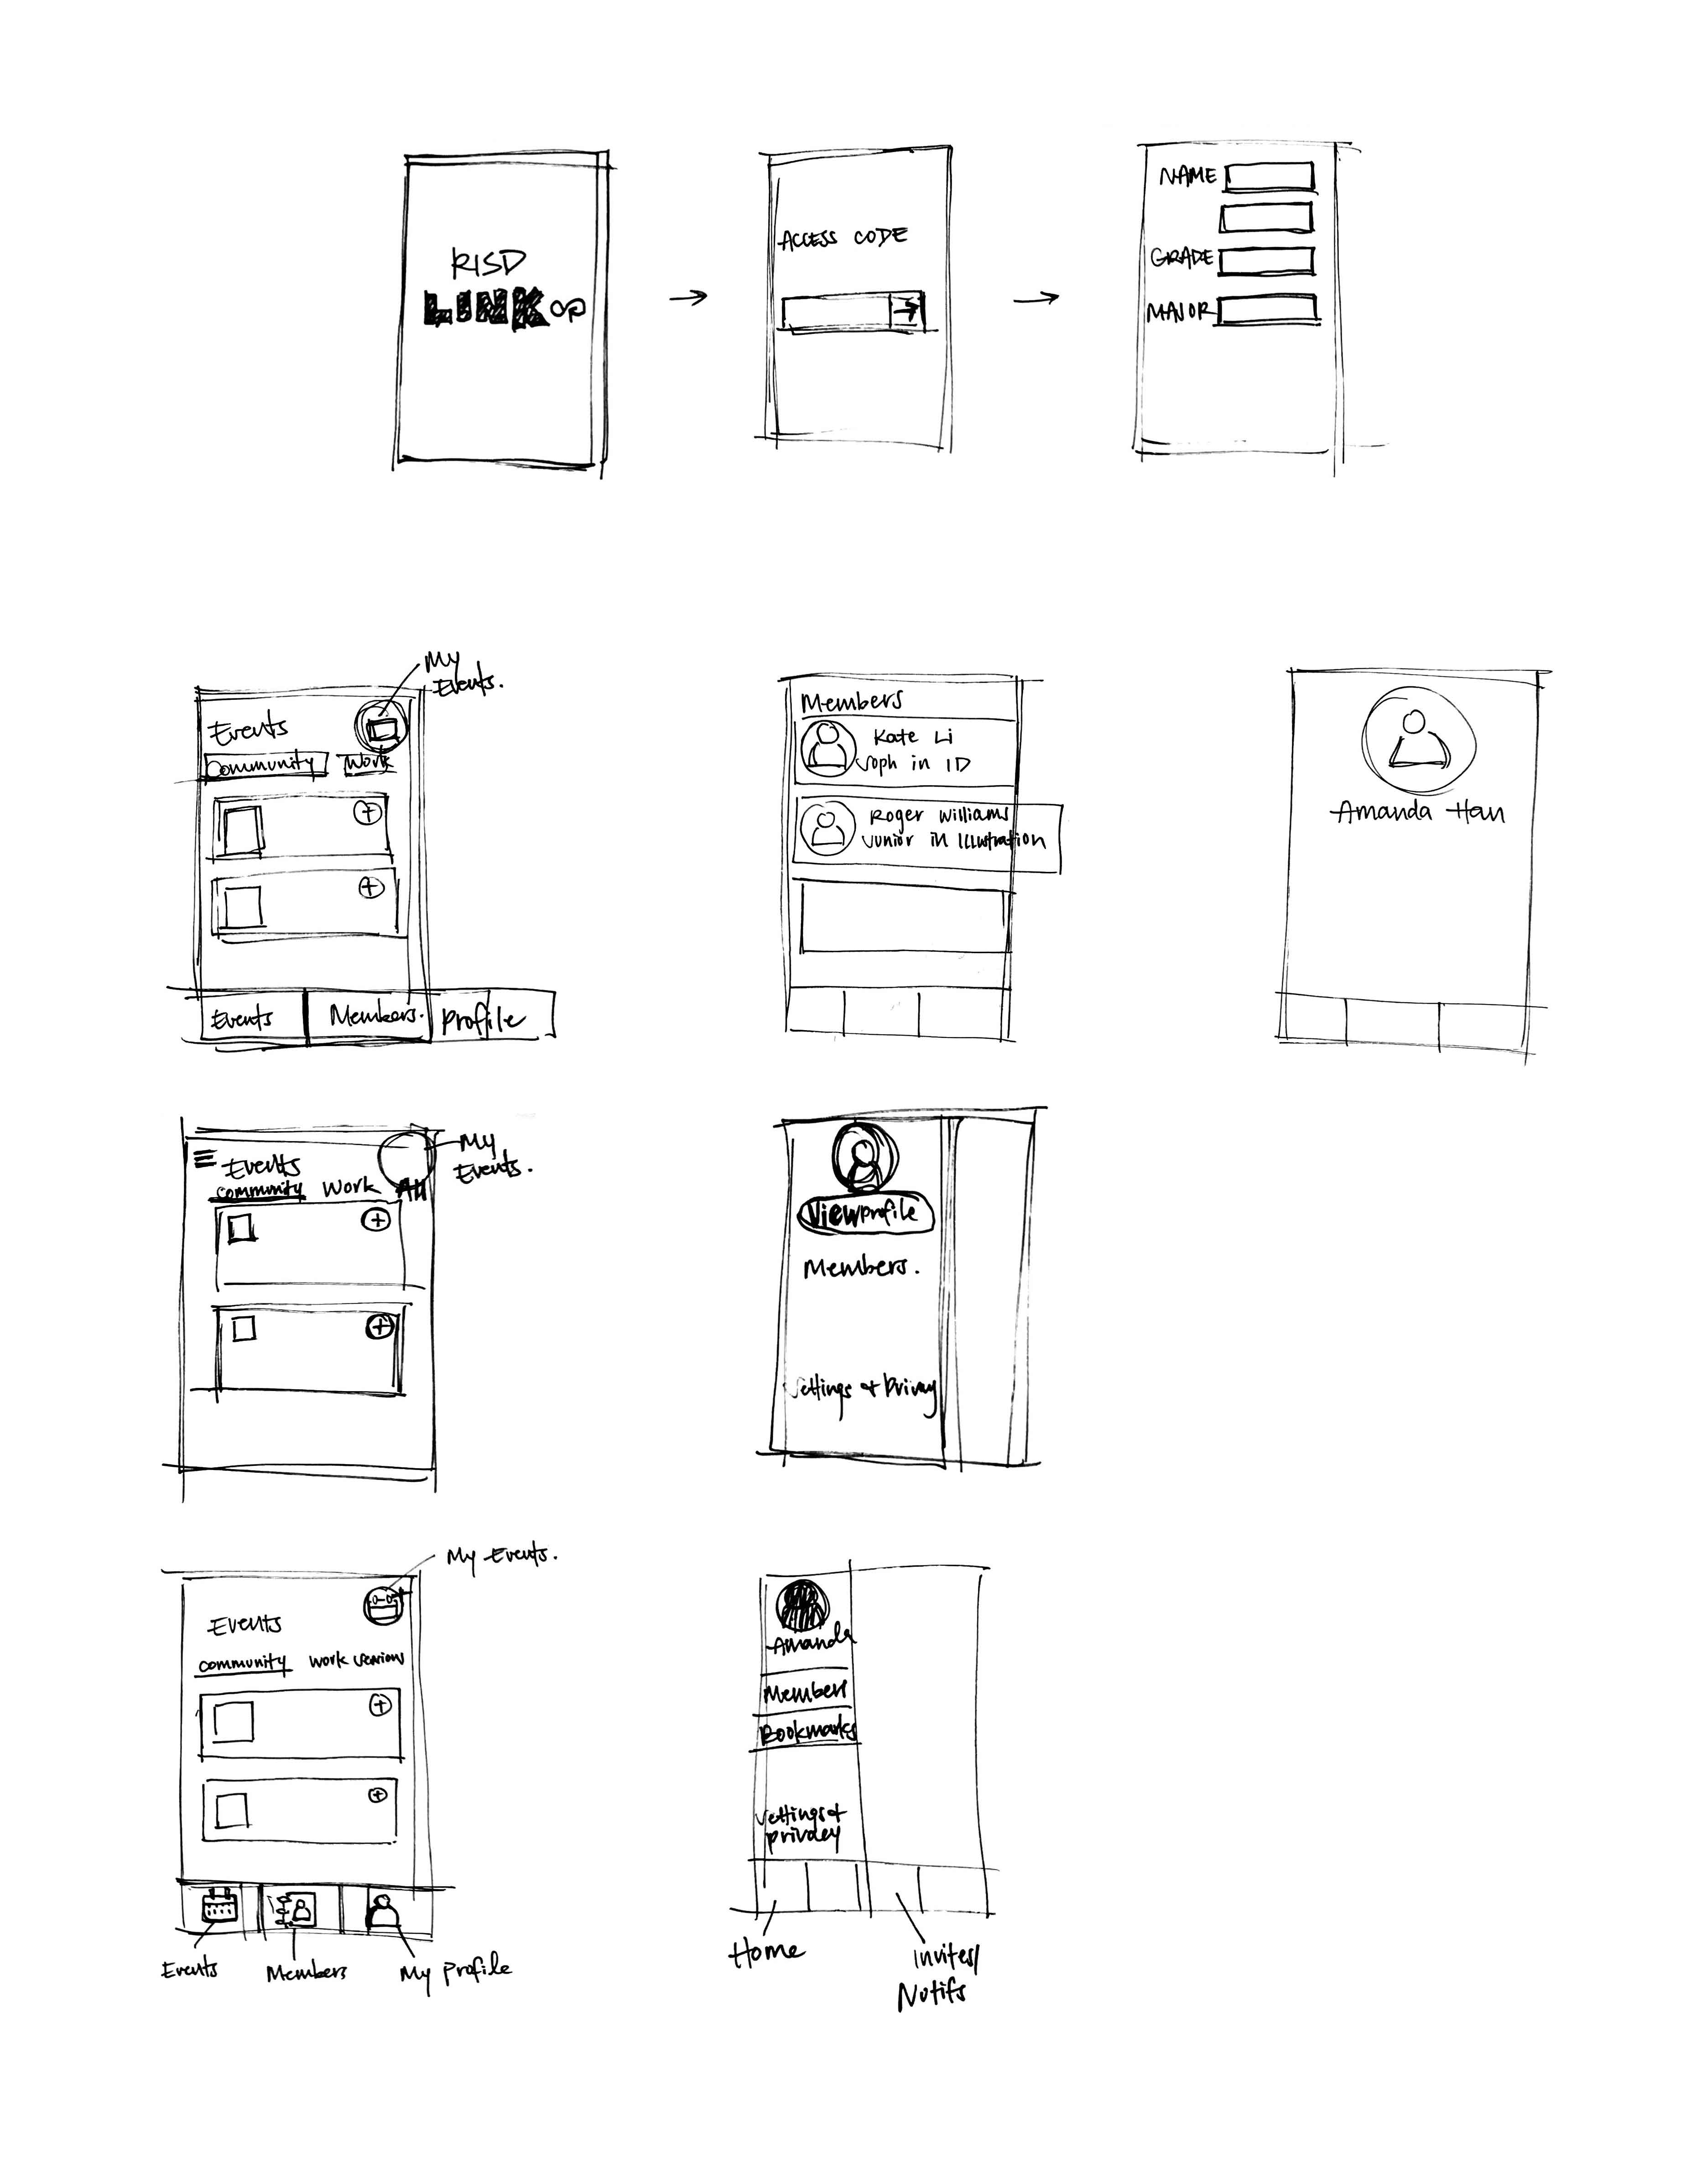 RISD
LINK
ACCESS CODE
NAME
GRADE
MAJOR
My
Events.
Events
Community Work
Events Members. Profile
Members
Kate Li
Soph in ID
Roger Williams
Junior in Illustration
Amanda Han
My
Events.
Events
community Work All
View profile
Members.
Settings & Privacy
My Events.
Events
community Work sessions
Events Members My Profile
Amanda
Members
Bookmarks
Settings &
privacy
Home
Invites/
Notifs